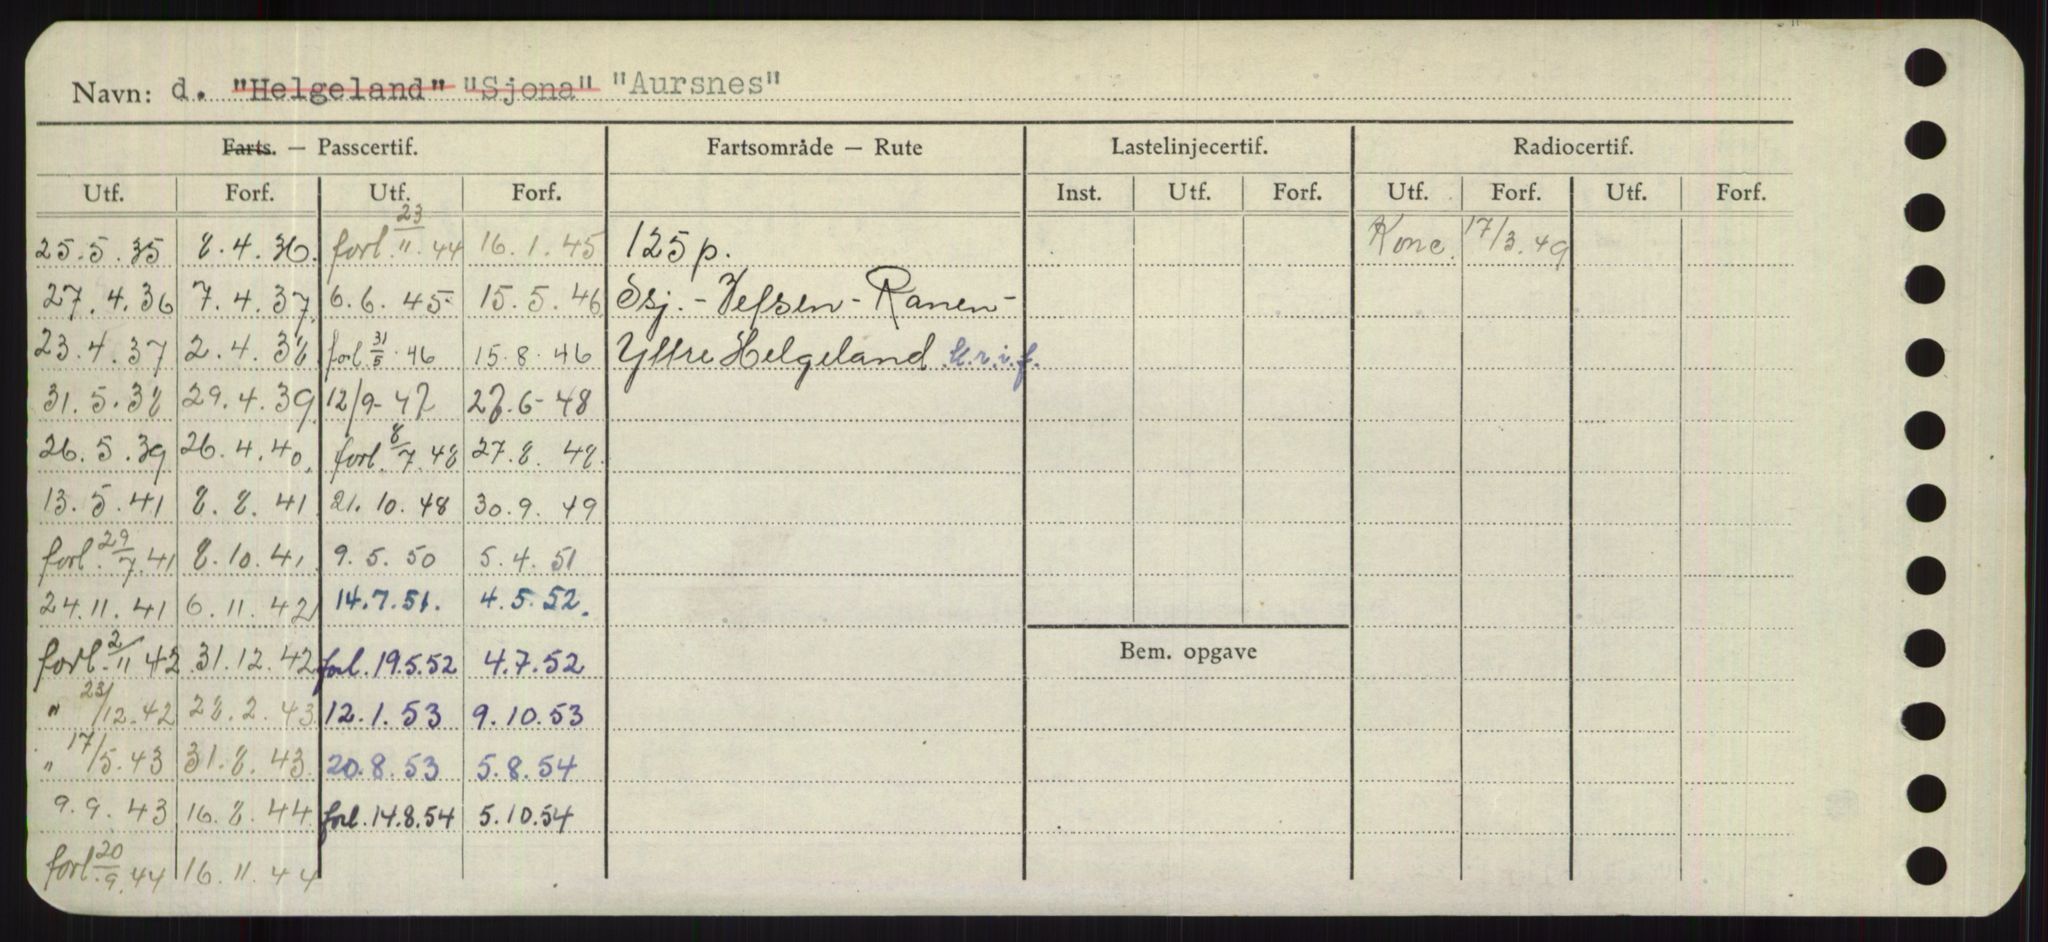 Navn: d. "Helgeland" "Sjona" "Aursnes"
Farts. — Passcertif. Fartsområde — Rute Lastelinjecertif. Radiocertif.
Utf. Forf. Utf. Forf. Inst. Utf. Forf. Utf. Forf. Utf. Forf.
25.5.35 8.4.36. forl. 23/11.44 16.1.45 125 p. Konc. 17/3.49
27.4.36 7.4.37. 6.6.45 15.5.46 Ssj. - Vefsen - Ranen -
23.4.37 2.4.38. forl 31/5.46 15.8.46 Yttre Helgeland k.r.i.f.
31.5.38 29.4.39. 12/9-47 27.6-48
26.5.39 26.4.40. forl. 8/7.48 27.8.48.
13.5.41 8.8.41. 21.10.48 30.9.49
forl. 29/7.41 8.10.41. 9.5.50 5.4.51
24.11.41 6.11.42 14.7.51. 4.5.52.
forl. 2/11 42 31.12.42 forl. 19.5.52 4.7.52
" 23/12.42 28.2.43. 12.1.53 9.10.53
" 17/5.43 31.8.43. 20.8.53 5.8.54
9.9.43 16.8.44 forl. 14.8.54 5.10.54
forl. 20/9.44 16.11.44
Bem. opgave